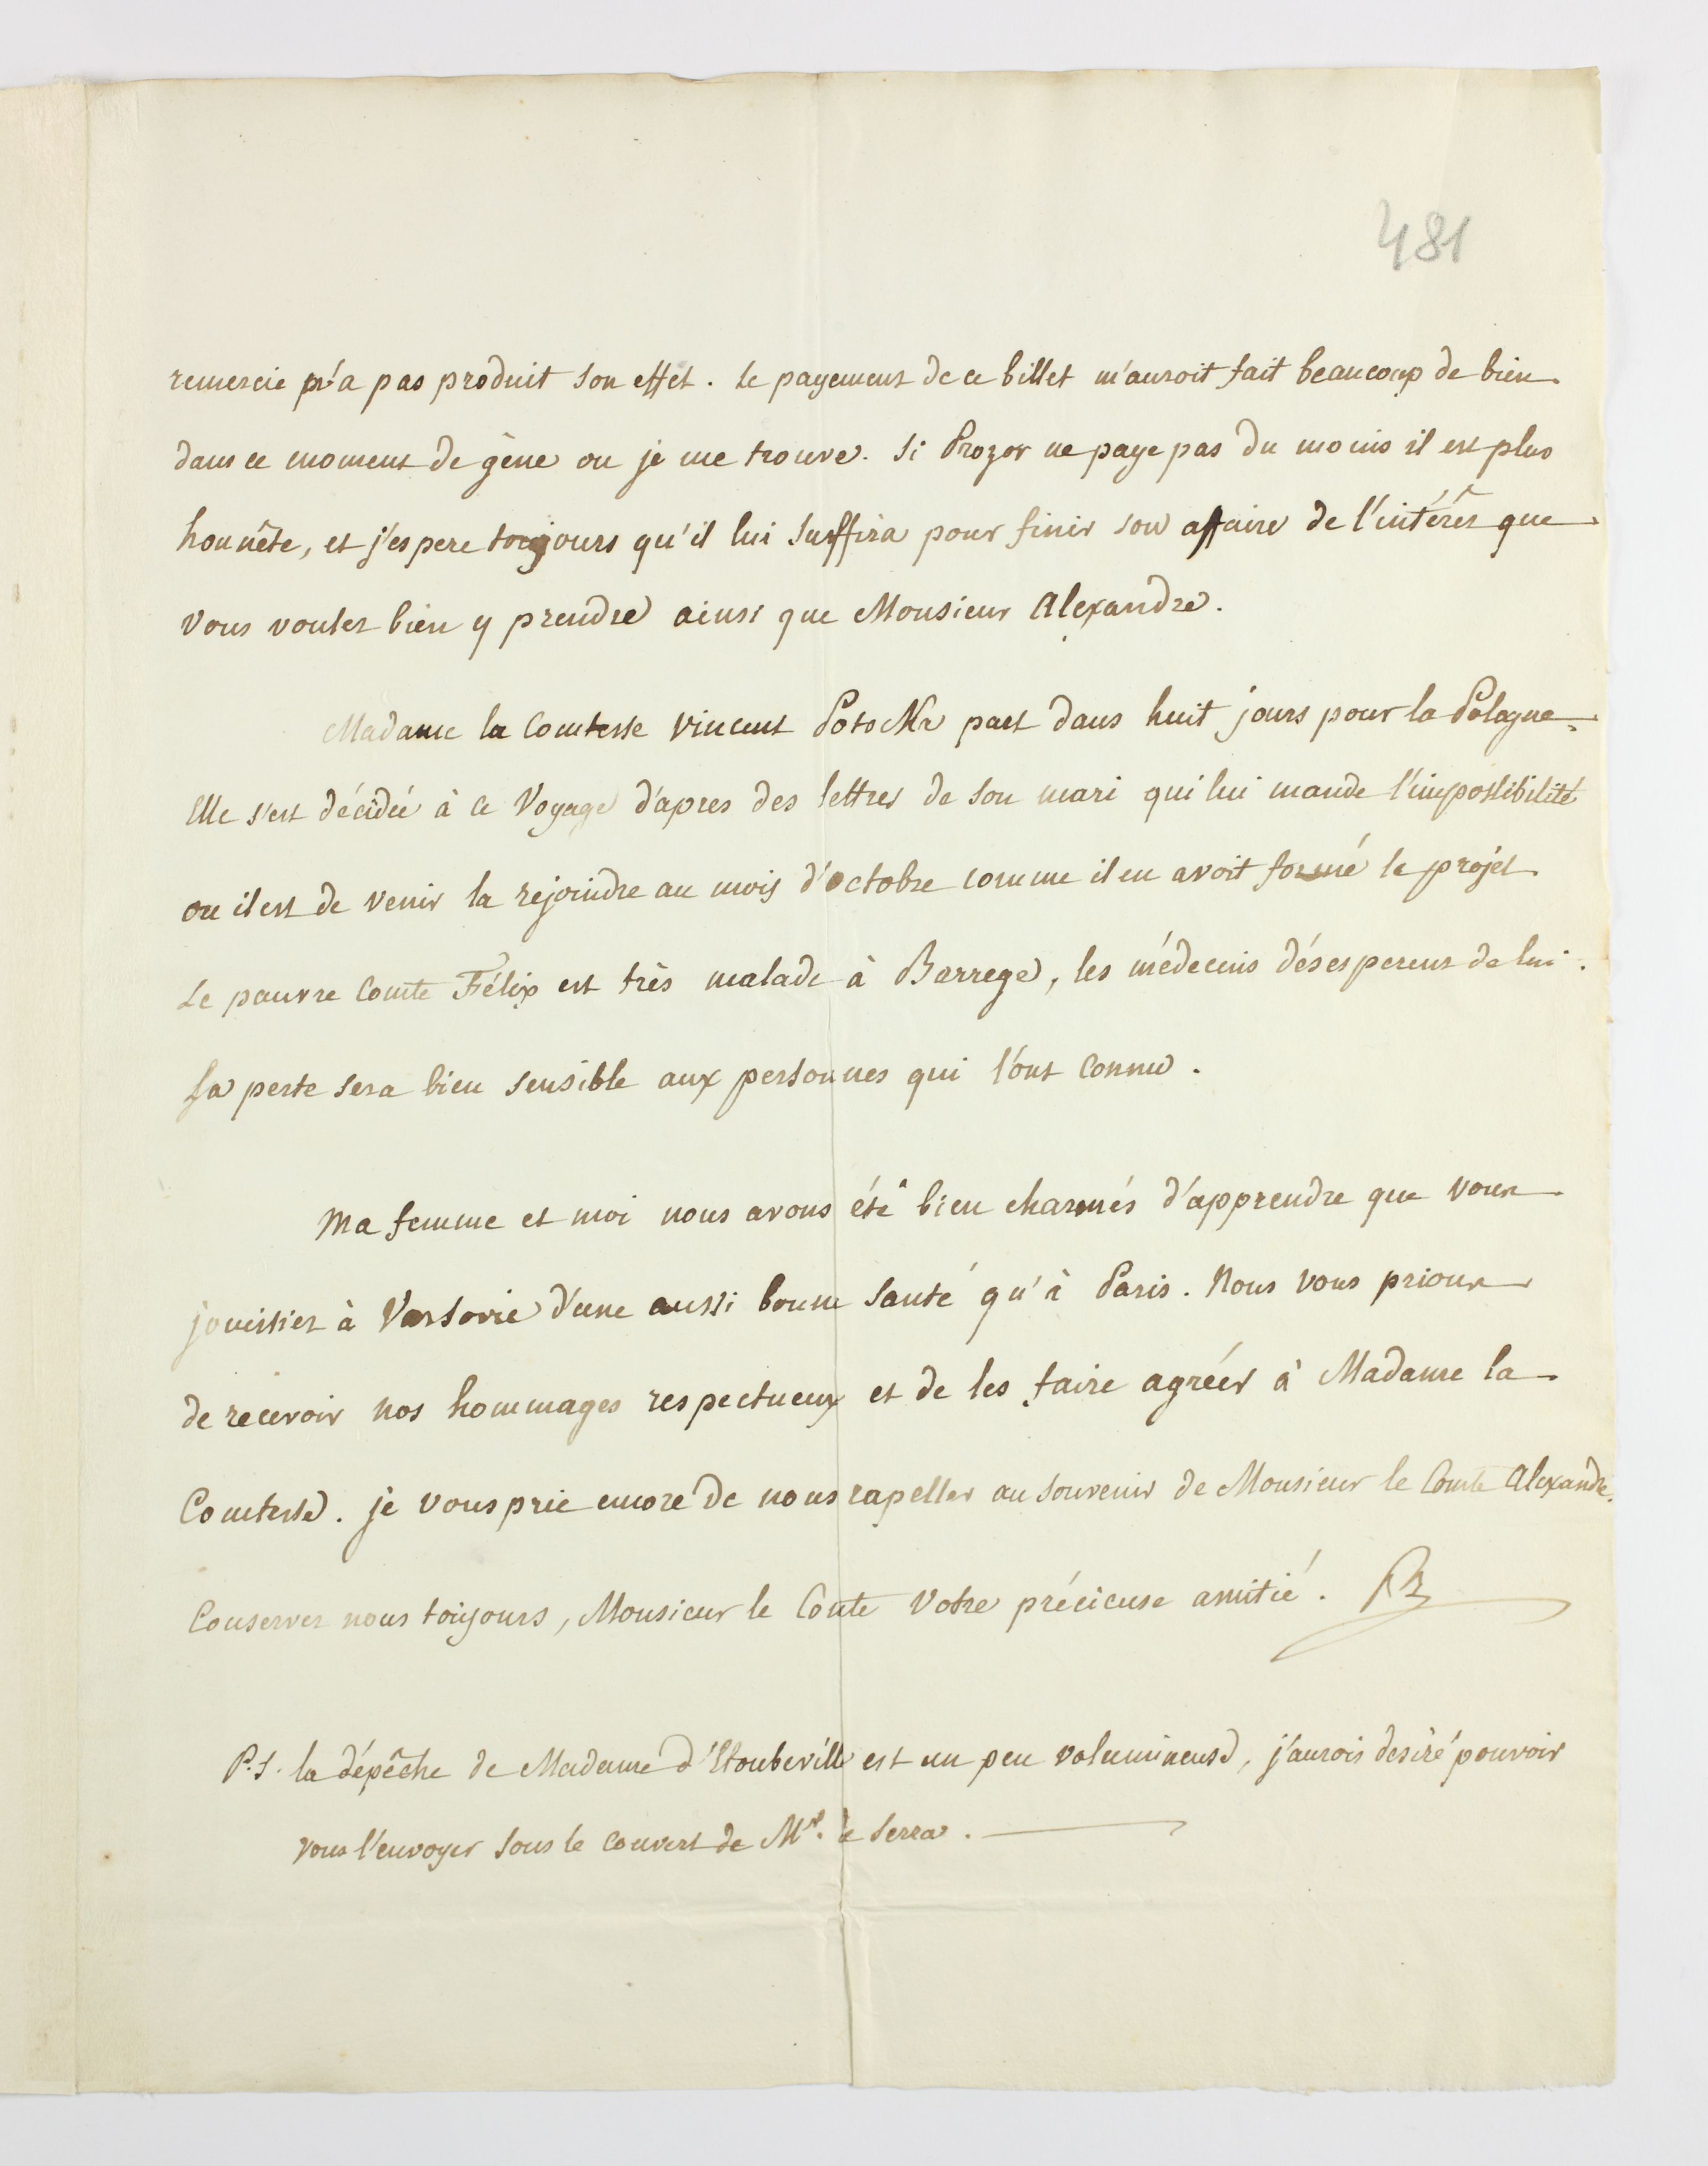 481
remercie n'a pas produit son effet. Le payement de ce billet m'auroit fait beaucoup de bien
dans ce moment de gêne ou je me trouve. Si Prozor ne paye pas du moins il est plus
honnête, et j'espere toujours qu'il lui suffira pour finir son affaire de l'intérêt que
vous voulez bien y prendre ainsi que Monsieur Alexandre.
Madame la Comtesse Vincent Potocka part dans huit jours pour la Pologne.
Elle s'est décidée à ce Voyage d'apres des lettres de son mari qui lui mande l'impossibilité
ou il est de venir la rejoindre au mois d'octobre comme il en avoit formé le projet.
Le pauvre Comte Félix est très malade à Barrege, les médecins désesperent de lui.
Sa perte sera bien sensible aux personnes qui l'ont connu.
Ma femme et moi nous avons été bien charmés d'apprendre que vous
jouissiez à Varsovie d'une aussi bonne santé qu'à Paris. Nous vous prions
de recevoir nos hommages respectueux et de les faire agréer à Madame la
Comtesse. je vous prie encore de nous rapeller au souvenir de Monsieur le Comte Alexandre.
Conservez nous toujours, Monsieur le Comte Votre précieuse amitié.
P.S. la dépêche de Madame d'Etoubeville est un peu volumineuse, j'aurois desiré pouvoir
vous l'envoyer sous le couvert de Mr. de Serra.